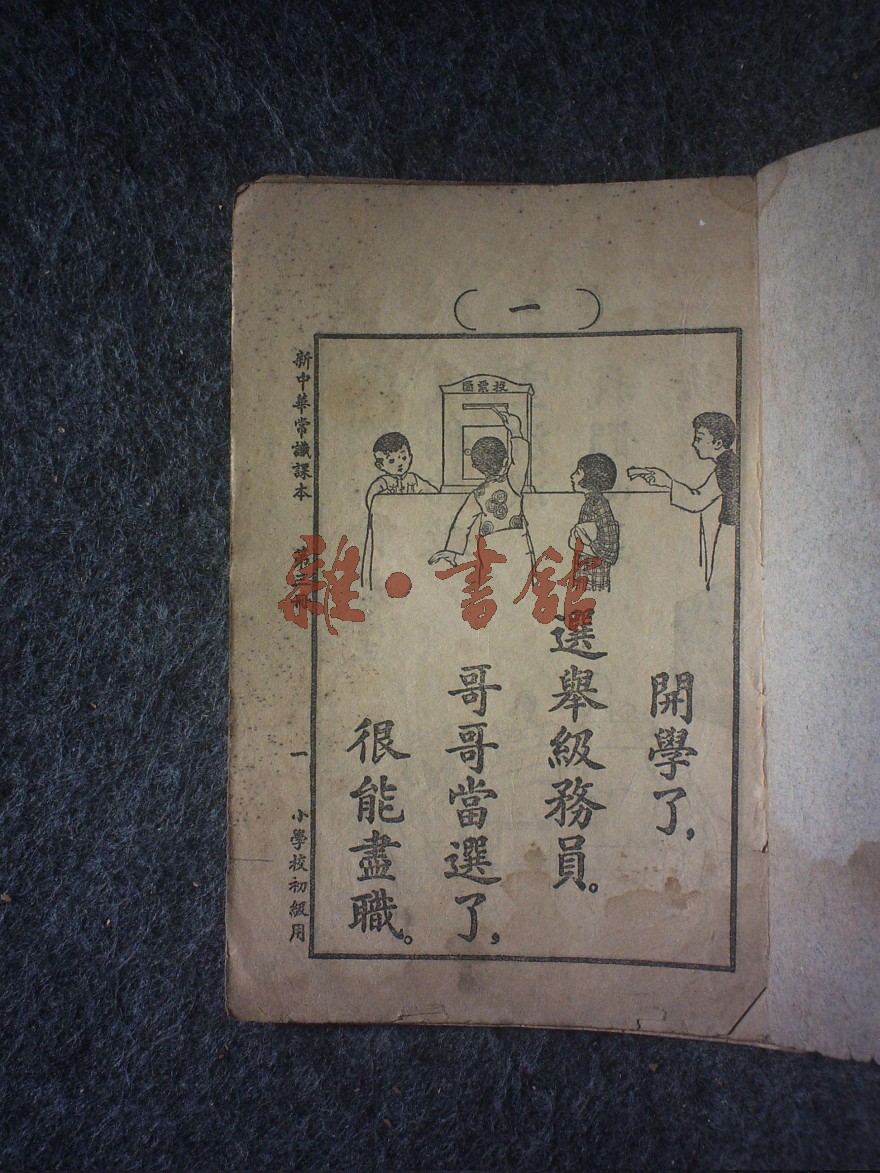 （一）
投票匭
開學了，
選舉級務員。
哥哥當選了，
很能盡職。
新中華常識課本
第三冊
一
小學校初級用
雜·書館